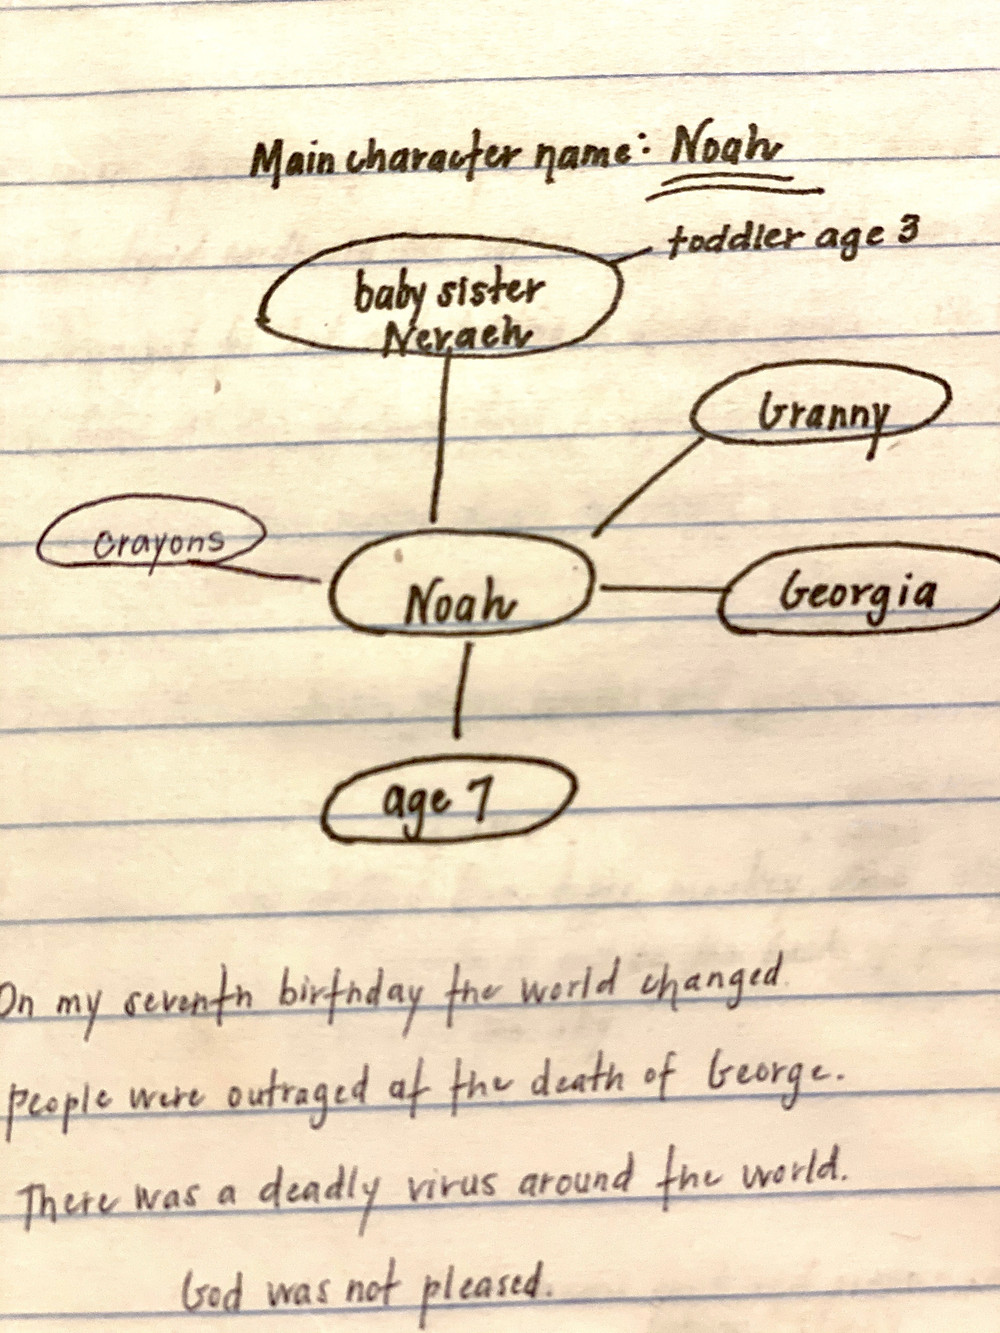 Main character name: Noah
toddler age 3
baby sister
Nevaeh
Granny
crayons
Noah
Georgia
age 7
On my seventh birthday the world changed.
people were outraged at the death of George.
There was a deadly virus around the world.
God was not pleased.